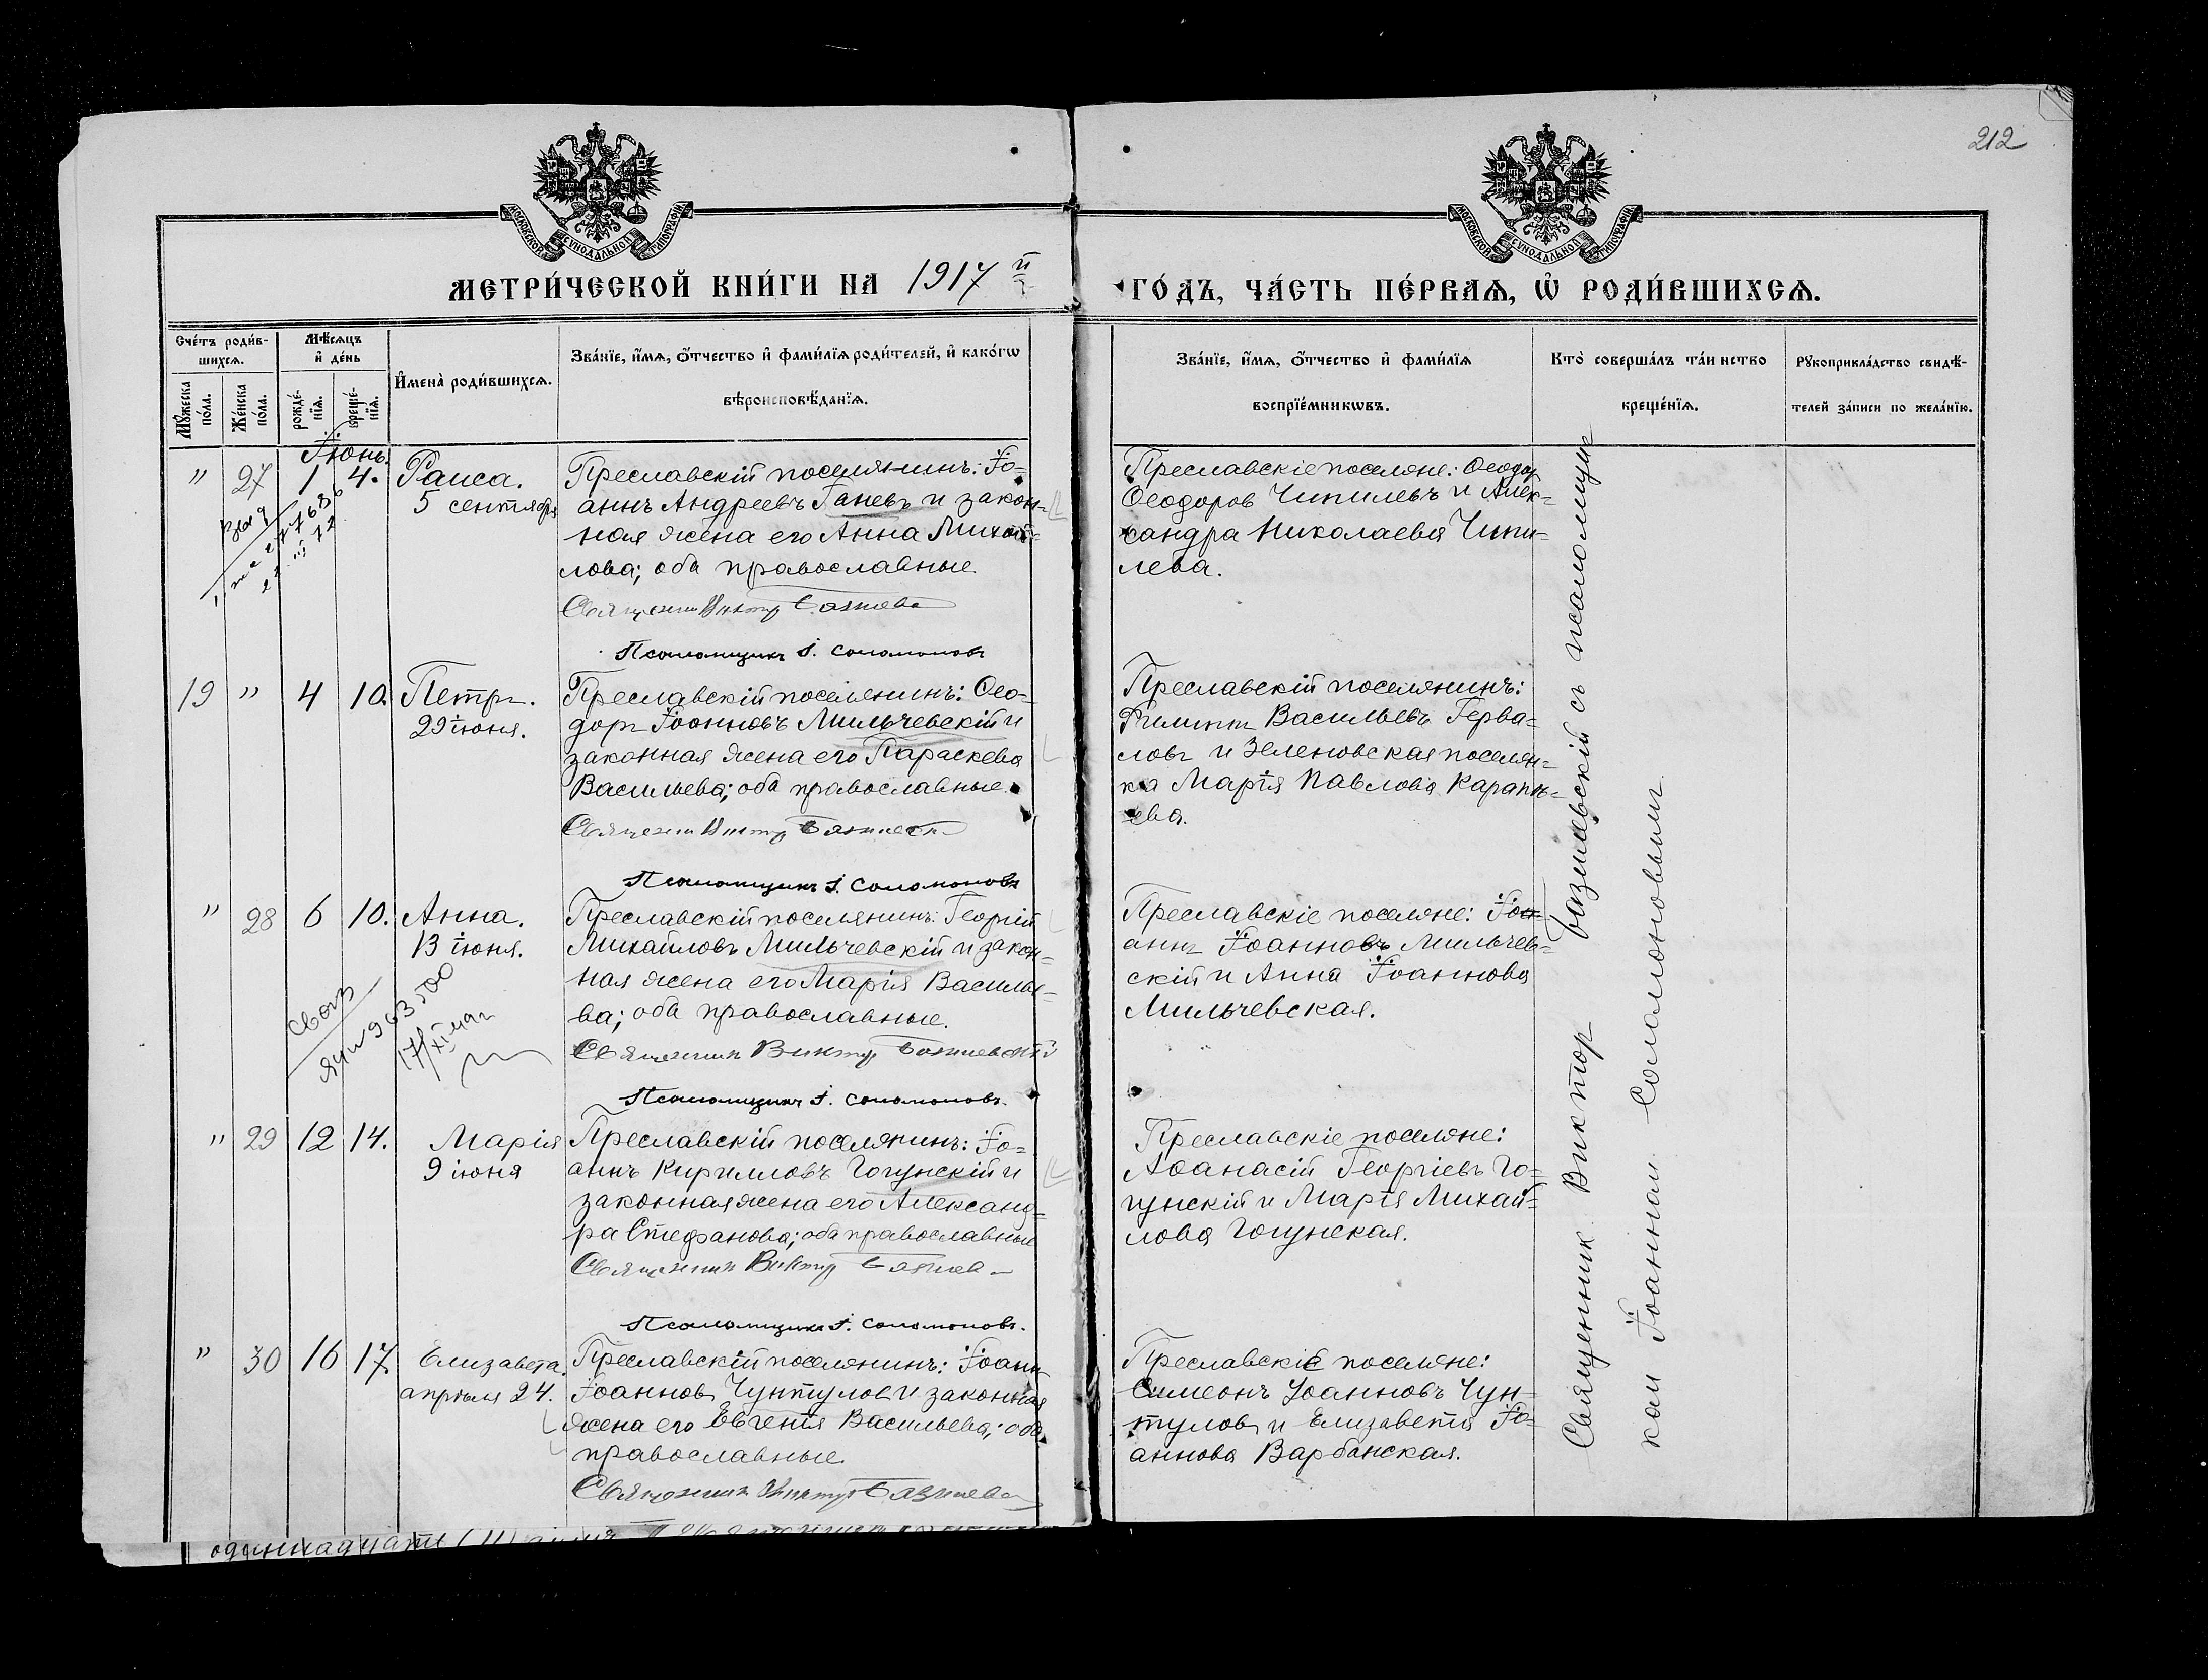 212
МОСКОВСКОЙ СѴНОДАЛЬНОЙ ТИПОГРАФІИ
МОСКОВСКОЙ СѴНОДАЛЬНОЙ ТИПОГРАФІИ
МЕТРИ́ЧЕСКОЙ КНИ́ГИ НА 1917 й
ГО́ДЪ, ЧА́СТЬ ПЕ́РВАѦ, Ѡ҆ РОДИ́ВШИХСѦ.
Сче́тъ роди́в-
шихсѧ.
Мѣ́сѧцъ
и҆ де́нь
И҆мена̀ роди́вшихсѧ.
Зва́нїе, и҆́мѧ, ѻ҆́тчество и҆ фами́лїѧ роди́телей, и҆ како́гѡ
вѣроисповѣ́данїѧ.
Мꙋ́жеска
по́ла.
Же́нска
по́ла.
рожде́-
нїѧ.
креще́-
нїѧ.
Зва́нїе, и҆́мѧ, ѻ҆́тчество и҆ фами́лїѧ
воспрїе́мникѡвъ.
Кто̀ соверша́лъ та́инство
креще́нїѧ.
Рꙋкоприкла́дство свидѣ́-
телей за́писи по жела́нїю.
Іюнь.
" 27 1 4. Раиса.
5 сентября
Преславскій поселянинъ: Іо-
аннъ Андреевъ Ганевъ и закон-
ная жена его Анна Михай-
лова; оба православные.
Священникъ Виктор
Псаломщикъ І. Соломоновъ
Преславскіе поселяне: Ѳеодор
Ѳеодоров Чипилевъ и Алек-
сандра Николаева Чипи-
лева.
19 " 4 10. Петръ.
29 іюня.
Преславскій поселянинъ: Ѳео-
доръ Іоанновъ Мильчевскій и
законная жена его Параскева
Васильева; оба православные.
Священникъ Виктор
Псаломщикъ І. Соломоновъ
Преславскій поселянинъ:
Филиппъ Васильевъ Герва-
ловъ и Зеленовская поселян-
ка Марія Павлова
ева.
" 28 6 10. Анна.
13 іюня.
Преславскій поселянинъ: Георгій
Михайловъ Мильчевскій и закон-
ная жена его Марія Василье-
ва; оба православные.
Священникъ Виктор
Псаломщикъ І. Соломоновъ.
Преславскіе поселяне: Іо-
аннъ Іоанновъ Мильчев-
скій и Анна Іоаннова
Мильчевская.
" 29 12 14. Марія
9 іюня
Преславскій поселянинъ: Іо-
аннъ Кирилловъ Гогунскій и
законная жена его Александ-
ра Стефанова; оба православные
Священникъ Виктор
Псаломщикъ І. Соломоновъ.
Преславскіе поселяне:
Аѳанасій Георгіевъ Го-
гунскій и Марія Михай-
лова Гогунская.
" 30 16 17. Елизавета.
апрѣля 24.
Преславскій поселянинъ: Іоанн
Іоаннов Чунтулов и законная
жена его Евгенія Васильева; оба
православные.
Священникъ Виктор
Преславскіе поселяне:
Симеонъ Іоанновъ Чун-
тулов и Елизавета Іо-
аннова Варбанская.
Священник Виктор Базилевскій съ псаломщи-
ком Іоанном Соломоновымъ